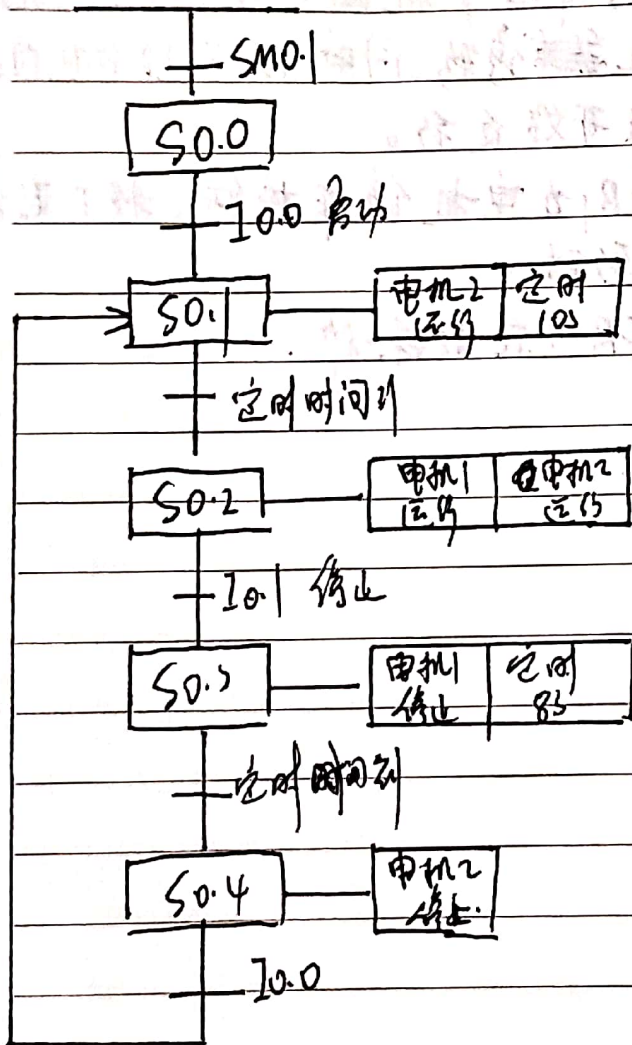 SM0.1
S0.0
I0.0 启动
S0.1
电机2
运行
定时
10S
定时时间到
S0.2
电机1
运行
电机2
运行
I0.1 停止
S0.3
电机1
停止
定时
8S
定时时间到
S0.4
电机2
停止
I0.0